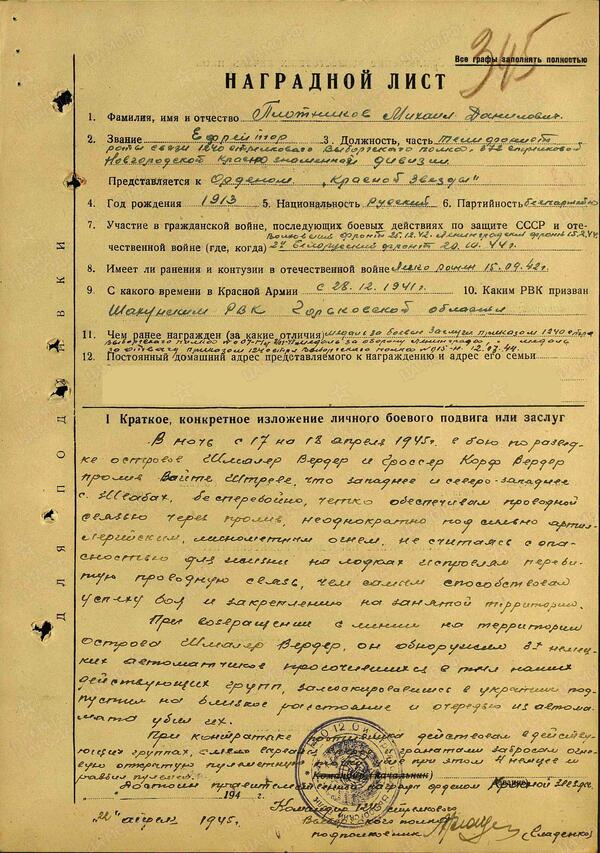 345
Все графы заполнять полностью
НАГРАДНОЙ ЛИСТ
1. Фамилия, имя и отчество Плотников Михаил Данилович
2. Звание Ефрейтор 3. Должность, часть телефонист
роты связи 1240 стрелкового Выборгского полка, 372 стрелковой
Новгородской Краснознаменной дивизии
Представляется к Орденом „Красной Звезды"
4. Год рождения 1913 5. Национальность Русский 6. Партийность беспартийный
7. Участие в гражданской войне, последующих боевых действиях по защите СССР и оте-
Волховский фронт 25.12.42. Ленинградский фронт 15.2.44
чественной войне (где, когда) 2й Белорусский фронт
8. Имеет ли ранения и контузии в отечественной войне Легко ранен 15.09.42г.
9. С какого времени в Красной Армии с 28.12.1941г. 10. Каким РВК призван
Шахунским РВК Горьковской области
11. Чем ранее награжден (за какие отличия) медаль за боевые заслуги приказом 1240 стр.
Выборгского полка медаль за оборону Ленинграда, медаль
за отвагу приказом 1240 стр. Выборгского полка № 015-н. 12.07.44.
12. Постоянный домашний адрес представляемого к награждению и адрес его семьи
I Краткое, конкретное изложение личного боевого подвига или заслуг
В ночь с 17 на 18 апреля 1945г. в бою по развед-
ке островов Шмалер Вердер и Гроссер Корф Вердер
пролив Вайте Штреве, что западнее и северо-западнее
с. Штабах, бесперебойно, четко обеспечивал проводной
связью через пролив, неоднократно под сильно артил-
лерийским, минометным огнем, не считаясь с опа-
сностью для жизни на лодках исправлял переби-
тую проводную связь, чем самим способствовал
успеху боя и закреплению на занятой территории.
При возвращении с линии на территории
острова Шмалер Вердер, он обнаружил 3х немец-
ких автоматчиков просочившихся в тыл наших
действующих групп, замаскировавшись в укрытии под-
пустил на близкое расстояние и очередью из автома-
мата убил их.
При контратаке противника действовал в действу-
ющих группах, смело гранатами забросал огне-
вую открытую пулеметную при этом 4 немцев и
Командир (начальник)
Достоин правительственной награды орденом Красной звезды
194
Командир 1240 стрелкового
Выборгского полка
„22" апреля 1945г. подполковник (Сладенко)
ДЛЯ ПОДШИВКИ